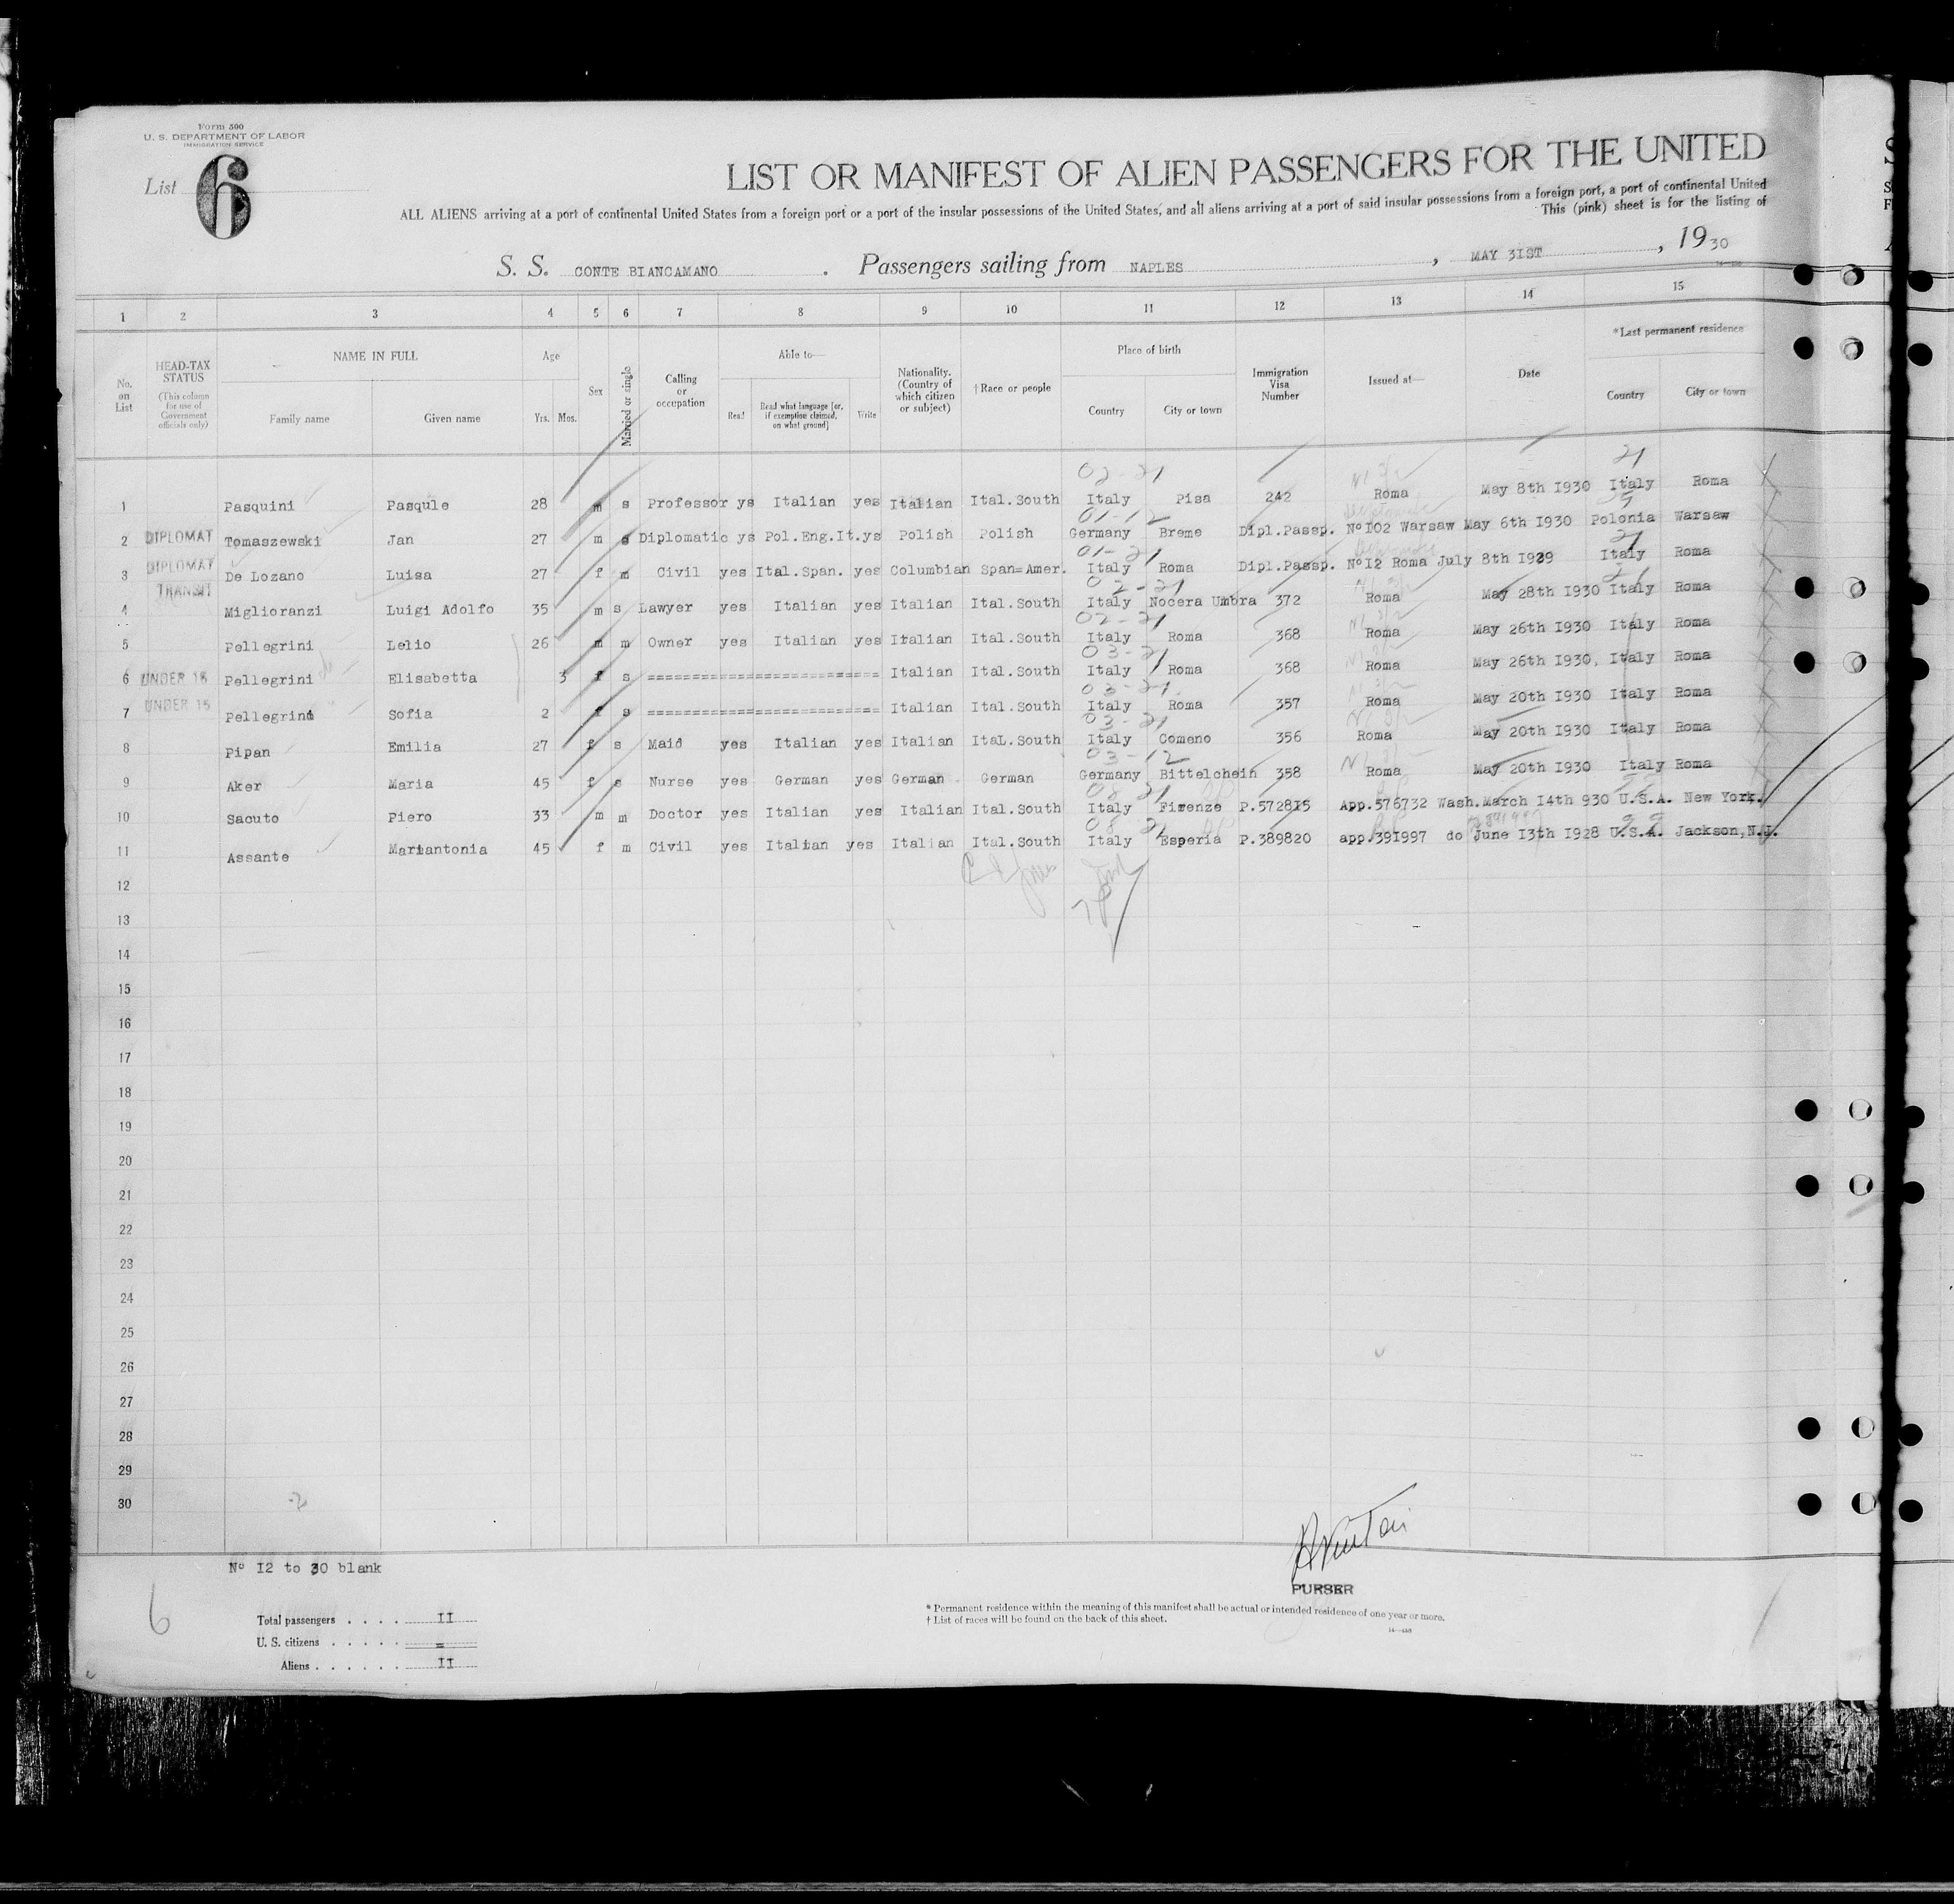 Form 500
U. S. DEPARTMENT OF LABOR
IMMIGRATION SERVICE
List 6
LIST OR MANIFEST OF ALIEN PASSENGERS FOR THE UNITED
ALL ALIENS arriving at a port of continental United States from a foreign port or a port of the insular possessions of the United States, and all aliens arriving at a port of said insular possessions from a foreign port, a port of continental United
This (pink) sheet is for the listing of
S. S. CONTE BIANCAMANO . Passengers sailing from NAPLES , MAY 3IST , 1930
1 2 3 4 5 6 7 8 9 10 11 12 13 14 15
No. on List
HEAD-TAX STATUS (This column for use of Government officials only)
NAME IN FULL
Family name Given name
Age
Yrs. Mos.
Sex
Married or single
Calling or occupation
Able to—
Read
Read what language [or, if exemption claimed, on what ground]
Write
Nationality. (Country of which citizen or subject)
†Race or people
Place of birth
Country City or town
Immigration Visa Number
Issued at—
Date
*Last permanent residence
Country City or town
02-21 21
1 Pasquini Pasqule 28 m s Professor ys Italian yes Italian Ital.South Italy Pisa 242 Roma May 8th I930 Italy Roma
01-12
2 DIPLOMAT Tomaszewski Jan 27 m s Diplomatic ys Pol.Eng.It.ys Polish Polish Germany Breme Dipl.Passp. NoI02 Warsaw May 6th I930 Polonia Warsaw
01-21 21
3 DIPLOMAT TRANSIT De Lozano Luisa 27 f m Civil yes Ital.Span. yes Columbian Span=Amer. Italy Roma Dipl.Passp. NoI2 Roma July 8th I929 Italy Roma
02-21
4 Miglioranzi Luigi Adolfo 35 m s Lawyer yes Italian yes Italian Ital.South Italy Nocera Umbra 372 Roma May 28th I930 Italy Roma
02-21
5 Pellegrini Lelio 26 m m Owner yes Italian yes Italian Ital.South Italy Roma 368 Roma May 26th I930 Italy Roma
03-21
6 UNDER 16 Pellegrini Elisabetta 3 f s ========================== Italian Ital.South Italy Roma 368 Roma May 26th I930, Italy Roma
03-21
7 UNDER 15 Pellegrini Sofia 2 f s ========================== Italian Ital.South Italy Roma 357 Roma May 20th I930 Italy Roma
03-21
8 Pipan Emilia 27 f s Maid yes Italian yes Italian ItaL.South Italy Comeno 356 Roma May 20th I930 Italy Roma
03-12
9 Aker Maria 45 f s Nurse yes German yes German German Germany Bittelchein 358 Roma May 20th I930 Italy Roma
08 21
10 Sacuto Piero 33 m m Doctor yes Italian yes Italian Ital.South Italy Firenze P.572815 App.576732 Wash.March I4th 930 U.S.A. New York.
08 21
11 Assante Mariantonia 45 f m Civil yes Italian yes Italian Ital.South Italy Esperia P.389820 app.391997 do June I3th I928 U.S.A. Jackson,N.J.
12
13
14
15
16
17
18
19
20
21
22
23
24
25
26
27
28
29
30
No I2 to 30 blank
PURSER
6
Total passengers . . . . II
U. S. citizens . . . . . =
Aliens . . . . . . II
* Permanent residence within the meaning of this manifest shall be actual or intended residence of one year or more.
† List of races will be found on the back of this sheet.